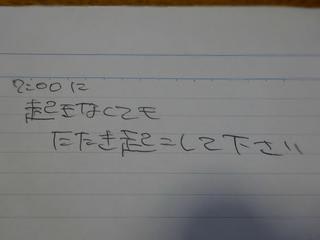 7:00に
起きなくても
たたき起こして下さい